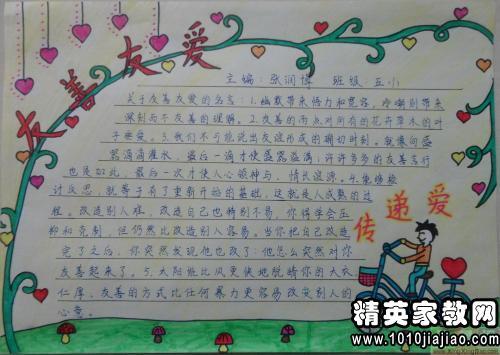 友善友爱
主编：张润博 班级：五小
关于友善友爱的名言：1.幽默带来悟力和宽容，冷嘲则带来
深刻而不友善的理解。2.友善的雨点对所有的花卉草木的叶
子垂爱。3.我们不可能说出友谊形成的确切时刻。就象向盛
器滴滴灌水，最后一滴才使盛器溢满；许许多多的友善言行
也是如此，最后一次才使人心领神与，情长谊深。4.免
讨反思，就等于有了重新开始的基础，这就是人成熟的过
程。改造别人难，改造自己也特别不易，你得学会压
抑和克制，但仍然比改造别人容易。当你把自己改造
完了之后，你突然发现他也改了：他怎么突然对你
友善起来了。5.太阳能比风更快地脱你的大衣
仁厚、友善的方式比任何暴力更容易改变别人的
心意。
传递爱
精英家教网
www.1010jiajiao.com